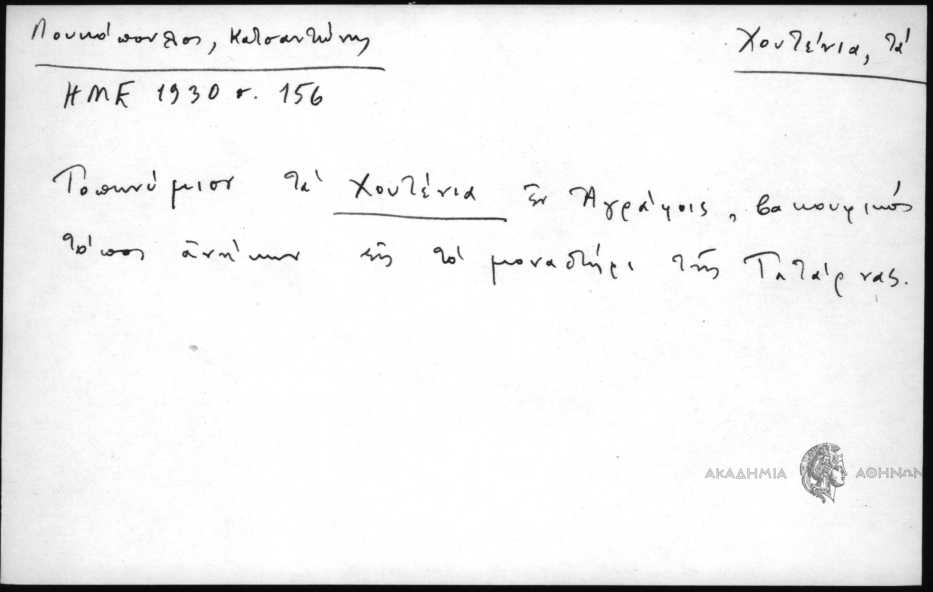 Λουκόπουλος, Κατσαντώνης
Χουτένια, τά
ΗΜΕ 1930 σ. 156
Τοπωνύμιον τά Χουτένια ἐν Ἀγράφοις, βακουφικός
τόπος ἀνήκων εἰς τό μοναστήρι τῆς Τατάρνας.
ΑΚΑΔΗΜΙΑ ΑΘΗΝΩΝ